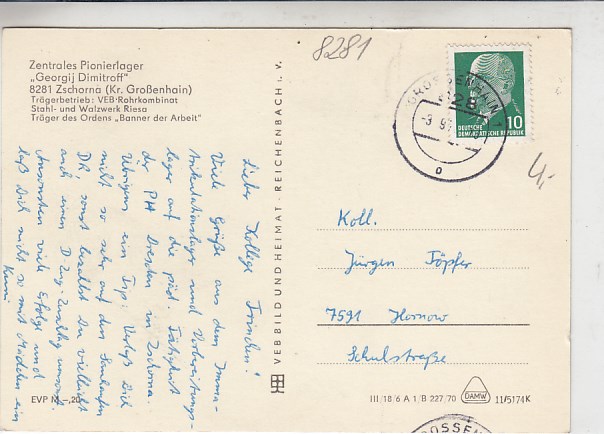 8281
Zentrales Pionierlager
„Georgij Dimitroff"
8281 Zschorna (Kr. Großenhain)
Trägerbetrieb: VEB·Rohrkombinat
Stahl- und Walzwerk Riesa
Träger des Ordens „Banner der Arbeit"
Lieber Kollege
Viele Grüße aus dem Imma-
trikulationslager und Vorbereitungs-
lager auf die päd. Tätigkeit
der PH Dresden in Zschorna
Übrigens ein Tip: Verlaß Dich
nicht so sehr auf den
DR sonst bezahlst Du vielleicht
auch einen D-Zug-Zuschlag umsonst.
Ansonsten viele Erfolge und
laß Dich nicht so mit Mädchen ein
EVP M –,20
VEB BILD UND HEIMAT · REICHENBACH i. V.
GROSSENHAIN 1
28
DEUTSCHE
DEMOKRATISCHE REPUBLIK
10
4,-
Koll.
Jürgen Töpfer
7591 Hornow
Schulstraße
III/18/6 A 1/B 227/70
DAMW
11/5174 K
ROSSEN